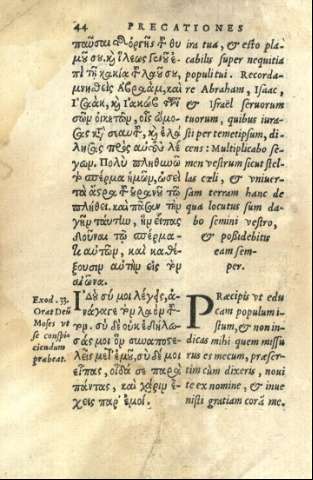 44 PRECATIONES
παῦσαι τῆς ὀργῆς τοῦ θυ
μοῦ σου, καὶ ἵλεως γενοῦ ἐ
πὶ τῇ κακίᾳ τοῦ λαοῦ σου,
μνησθεὶς Ἀβραὰμ, καὶ
Ἰσαὰκ, καὶ Ἰακὼβ τῶν
σῶν οἰκετῶν, οἷς ὤμο
σας κατὰ σεαυτοῦ, καὶ ἐλά
λησας πρὸς αὐτοὺς λέ
γων. Πολυ πληθυνῶ
τὸ σπέρμα ὑμῶν, ὡσεὶ
τὰ ἄστρα τοῦ οὐρανοῦ τῷ
πλήθει. καὶ πᾶσαν τὴν
γῆν ταύτην, ἣν εἶπας
δοῦναι τῷ σπέρμα
τι αὐτῶν, καὶ καθέ
ξουσιν αὐτὴν εἰς τὸν
αἰῶνα.
ira tua, & esto pla
cabilis super nequitia
populi tui. Recorda
re Abraham, Isaac,
& Israël seruorum
tuorum, quibus iura
sti per temetipsum, di
cens: Multiplicabo se
men vestrum sicut stel
las cæli, & vniuer
sam terram hanc de
qua locutus sum da
bo semini vestro,
& possidebitis
eam sem-
per.
Exod. 33.
Orat Deū
Moses vt
se conspi
ciendum
præbeat.
Ἰδοὺ σύ μοι λέγεις, ἀ
νάγαγε τὸν λαὸν τοῦ
τον. σὺ δὲ οὐκ ἐδήλω
σάς μοι ὃν συναποσ
τελεῖς μετ' ἐμοῦ, σὺ δέ μοι
εἶπας, οἶδά σε παρὰ
πάντας, καὶ χάριν ἔ
χεις παρ' ἐμοί.
PRæcipis vt edu
cam populum i
stum, & non in
dicas mihi quem missu
rus es mecum, præser
tim cùm dixeris, noui
te ex nomine, & inue
nisti gratiam corā me.